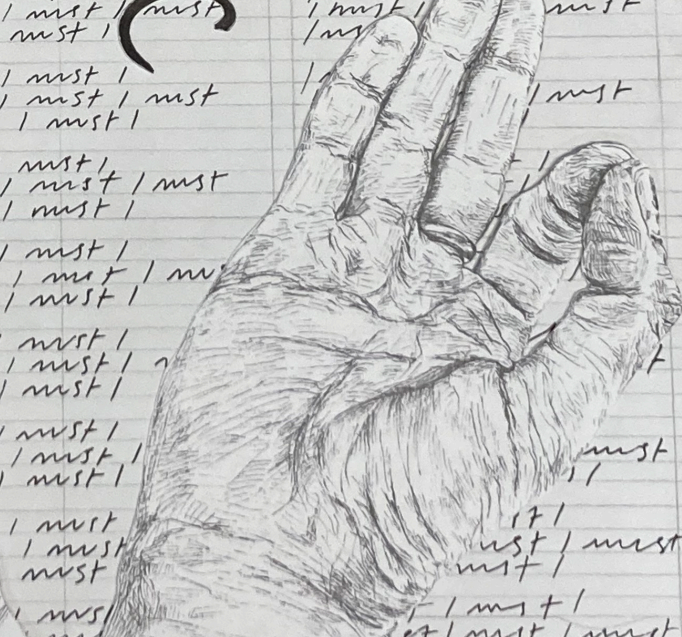 I must I must I must I must
must I I must
I must I I
I must I must I must
I must I
must I
I must I must
I must I
must I
I must I
I must I
must I
I must I
I must I
must I
I must I must
must I
I must I
I must must I must
must must I
I must I must I
I must I must